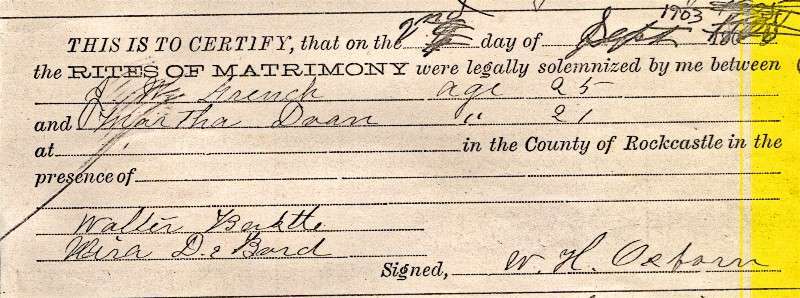 1903
THIS IS TO CERTIFY, that on the 2nd day of Sept
the RITES OF MATRIMONY were legally solemnized by me between
French age 25
and Martha Doan " 21
at in the County of Rockcastle in the
presence of
Walter
De Bord
Signed, W. H. Osborn